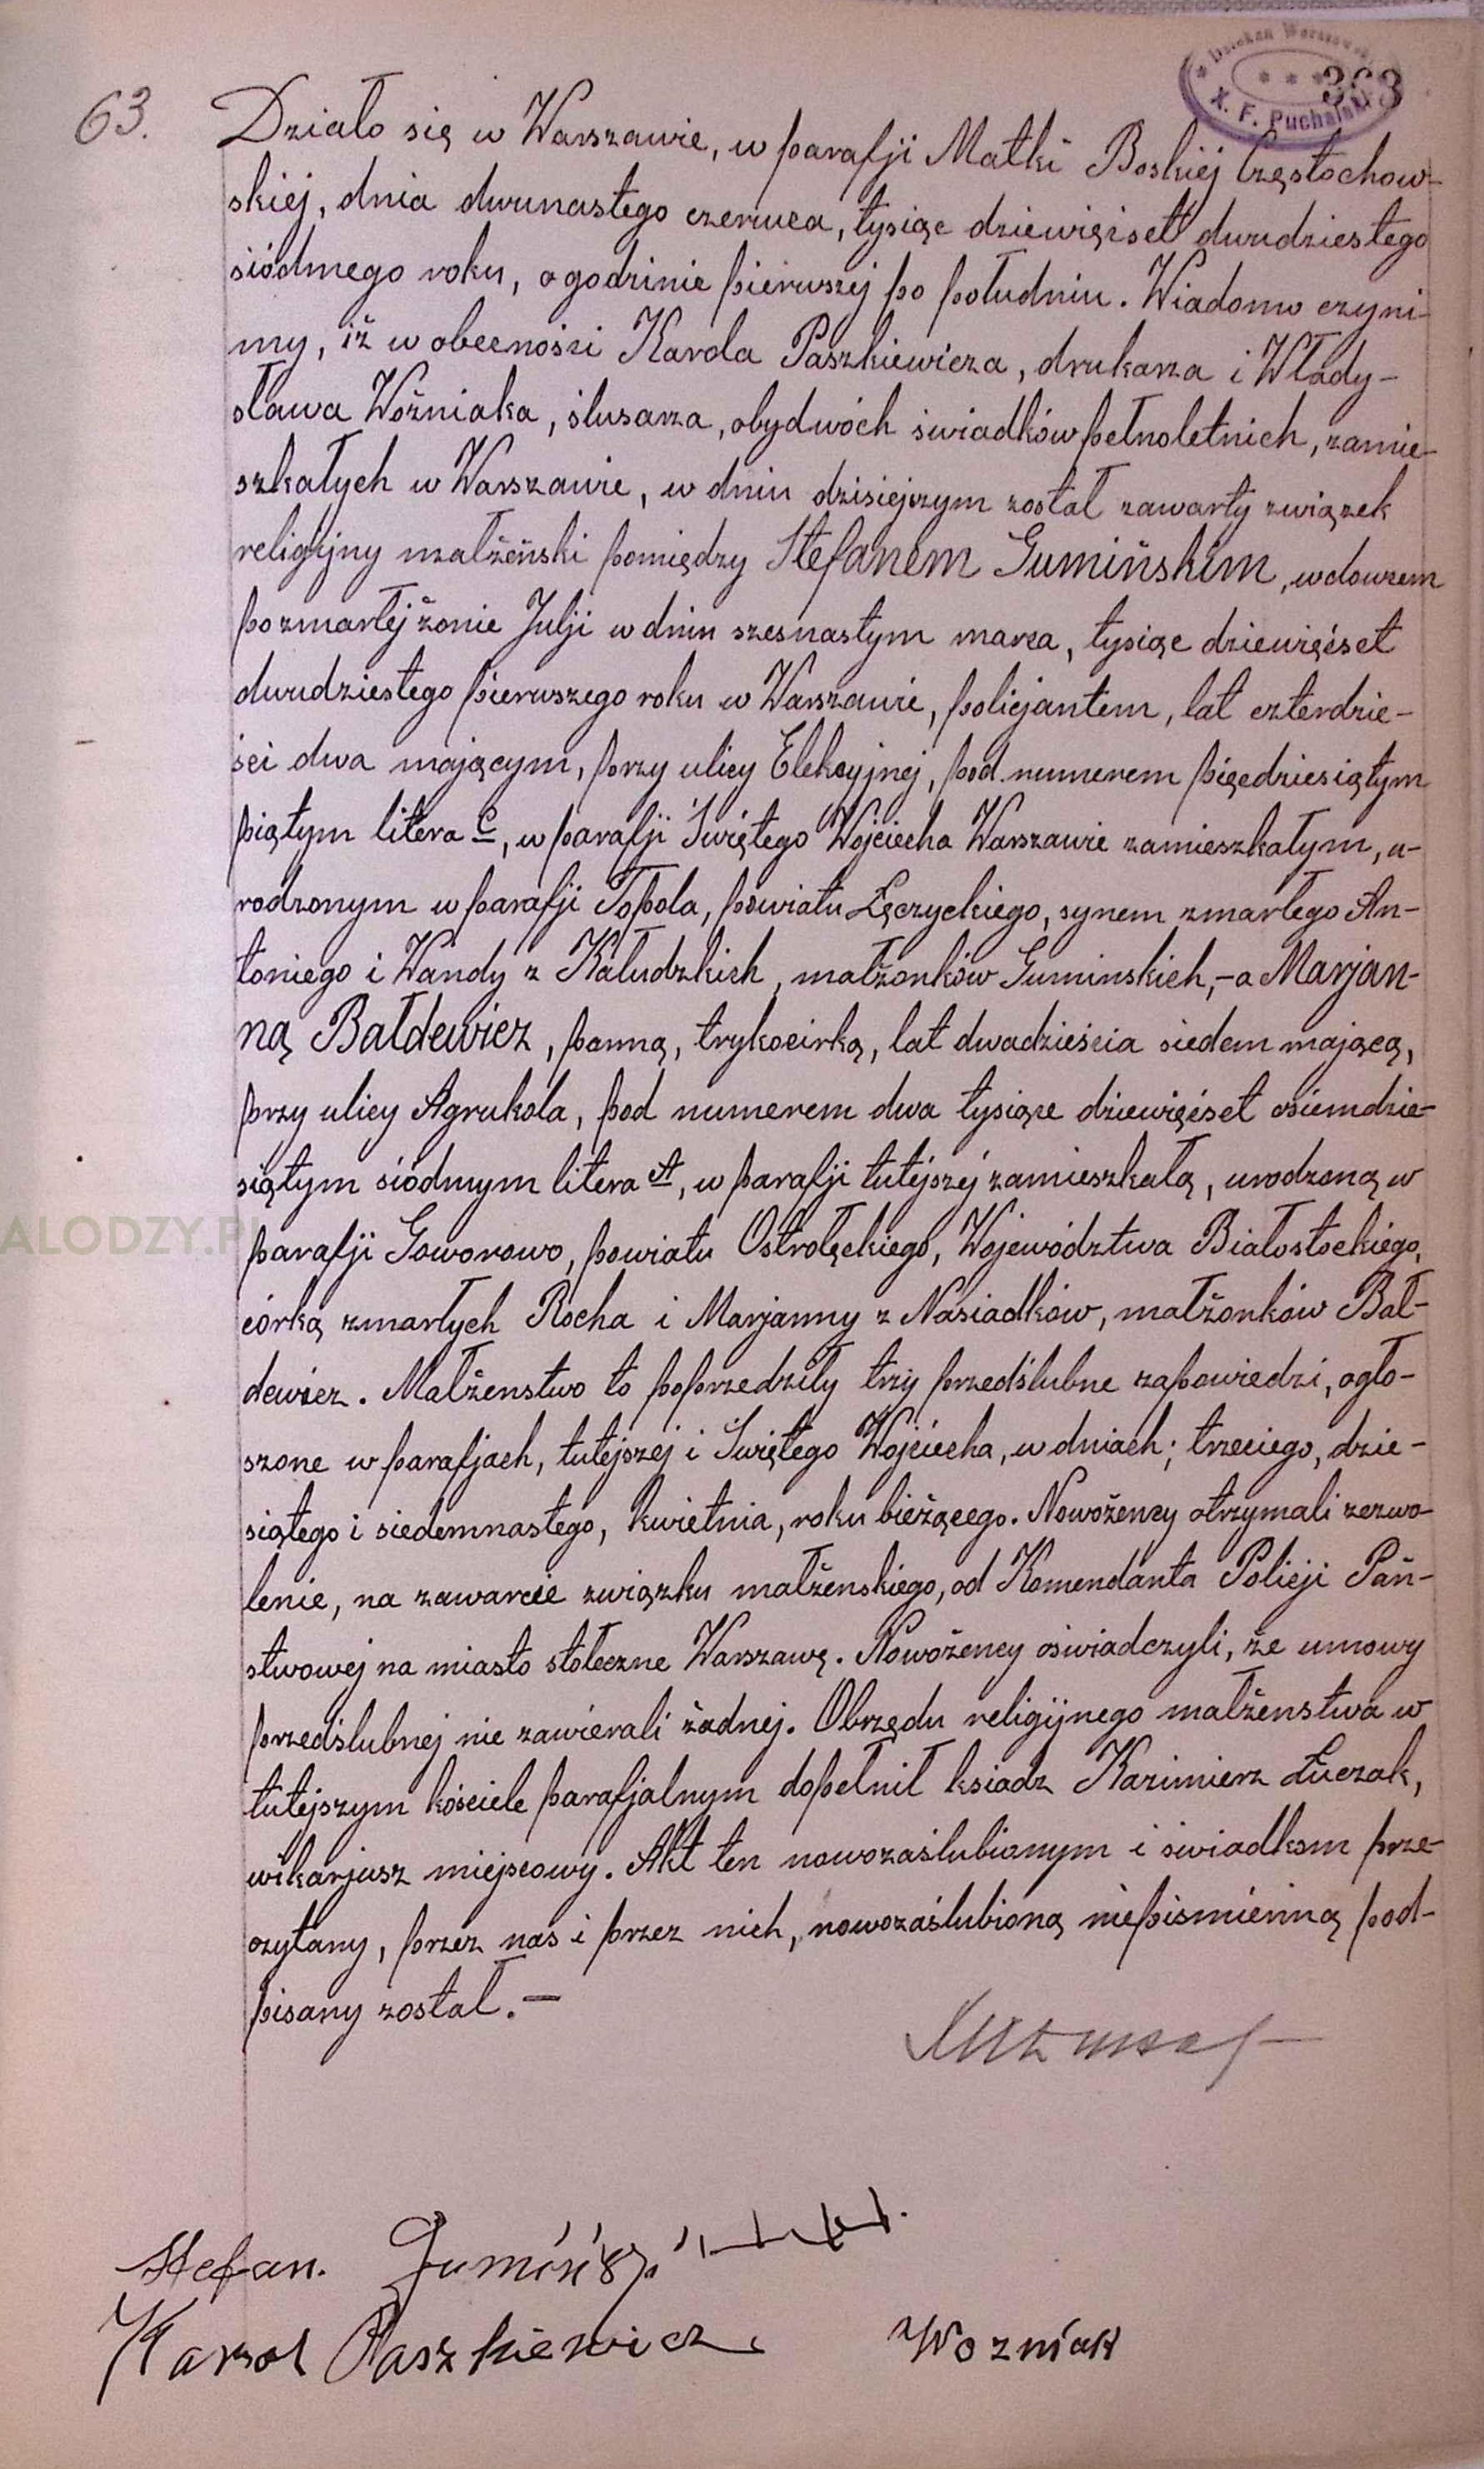 * Dziekan Warszaw
* * *
X. F. Puchalski
363
63.
Działo się w Warszawie, w parafji Matki Boskiej Częstochow-
skiej, dnia dwunastego czerwca, tysiąc dziewięćset dwudziestego
siódmego roku, o godzinie pierwszej po południu. Wiadomo czyni-
my, iż w obecności Karola Paszkiewicza, drukarza i Włady-
sława Woźniaka, ślusarza, obydwóch świadków pełnoletnich, zamie-
szkałych w Warszawie, w dniu dzisiejszym został zawarty związek
religijny małżeński pomiędzy Stefanem Gumińskim, wdowcem
po zmarłej żonie Julji w dniu szesnastym marca, tysiąc dziewięćset
dwudziestego pierwszego roku w Warszawie, policjantem, lat czterdzie-
ści dwa mającym, przy ulicy Elekcyjnej, pod numerem pięćdziesiątym
piątym litera C, w parafji Świętego Wojciecha Warszawie zamieszkałym, u-
rodzonym w parafji Topola, powiatu Łęczyckiego, synem zmarłego An-
toniego i Wandy z Kałudzkich, małżonków Guminskich,- a Marjan-
ną Bałdewicz, panną, trykociarką, lat dwadzieścia siedem mającą,
przy ulicy Agrukola, pod numerem dwa tysiące dziewięćset osiemdzie-
siątym siódmym litera A, w parafji tutejszej zamieszkałą, urodzoną w
parafji Goworowo, powiatu Ostrołęckiego, Województwa Białostockiego,
córką zmarłych Rocha i Marjanny z Nasiadków, małżonków Bał-
dewicz. Małżenstwo to poprzedziły trzy przedślubne zapowiedzi, ogło-
szone w parafjach, tutejszej i Świętego Wojciecha, w dniach; trzeciego, dzie-
siątego i siedemnastego, kwietnia, roku bieżącego. Nowożency otrzymali zezwo-
lenie, na zawarcie związku małżenskiego, od Komendanta Policji Pań-
stwowej na miasto stołeczne Warszawę. Nowożency oświadczyli, że umowy
przedślubnej nie zawierali żadnej. Obrzędu religijnego małżenstwa w
tutejszym kościele parafjalnym dopełnił ksiadz Kazimierz Łuczak,
wikarjusz miejscowy. Akt ten nowozaślubionym i świadkom prze-
czytany, przez nas i przez nich, nowozaślubioną niepismienną pod-
pisany został.-
Stefan. Gumiński
Karol Paszkiewicz
Wozniak
ALODZY.P